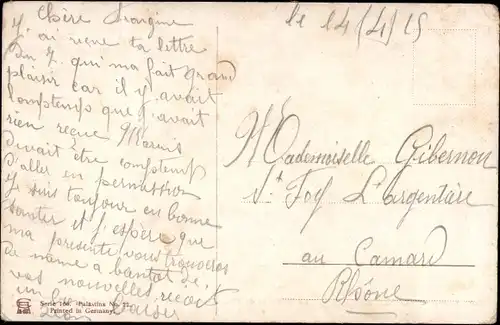 le 14/4/15
Chère
J'ai reçue ta lettre
du 7. qui ma fait grand
plaisir car il y avait
lomptemps que j'avait
rien reçue
devait être comptemp
d'aller en permission
Je suis toujour en bonne
santer et j'espère que
ma présente vous trouveras
de même a bientot de
vos nouvelles reçois
un baiser
Mademoiselle Gibernon
St Foy L'argentière
au Camard
Rhône
Serie 166. Palästina No.
Printed in Germany.